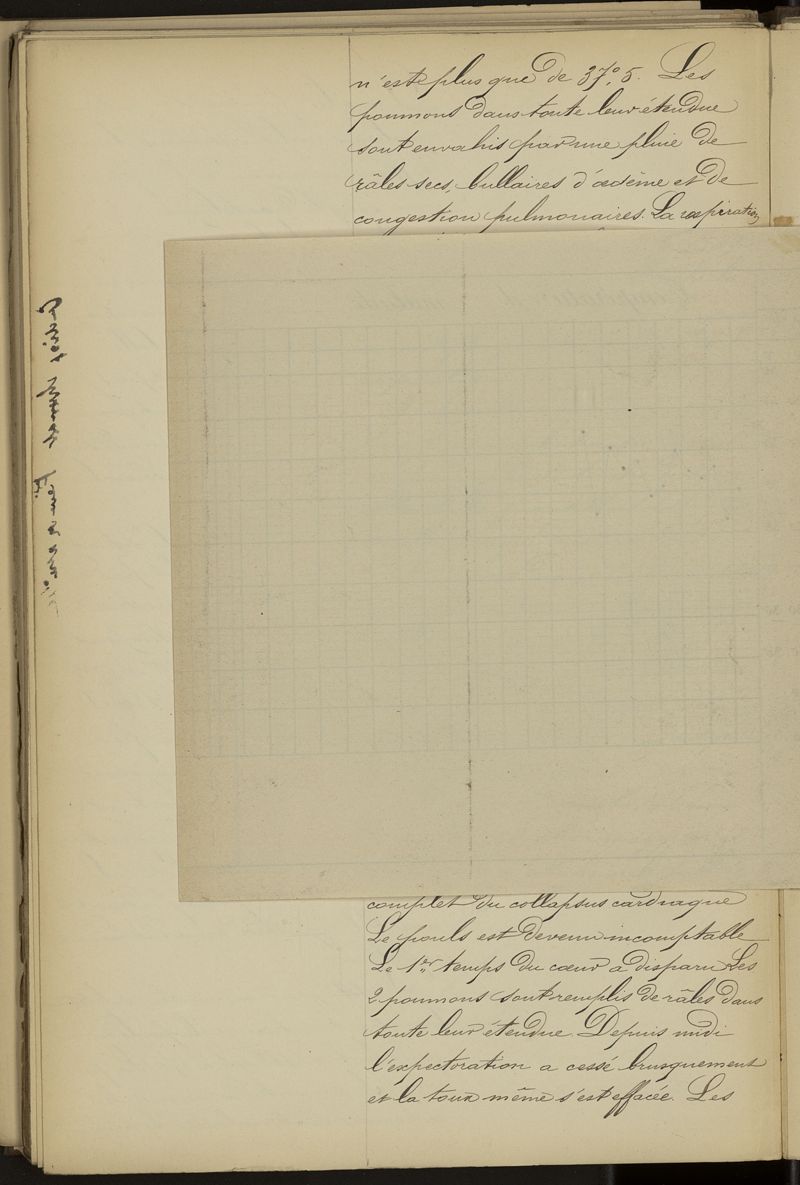 n'est plus que de 37°,5. Les
poumons dans toute leur étendue
sont envahis par une pluie de
râles secs, bullaires d'œdème et de
congestion pulmonaires. La respiration
complet du collapsus cardiaque
Le pouls est devenu incomptable
Le 1er temps du cœur a disparu. Les
2 poumons sont remplis de râles dans
toute leur étendue. Depuis midi
l'expectoration a cessé brusquement
et la toux même s'est effacée. Les